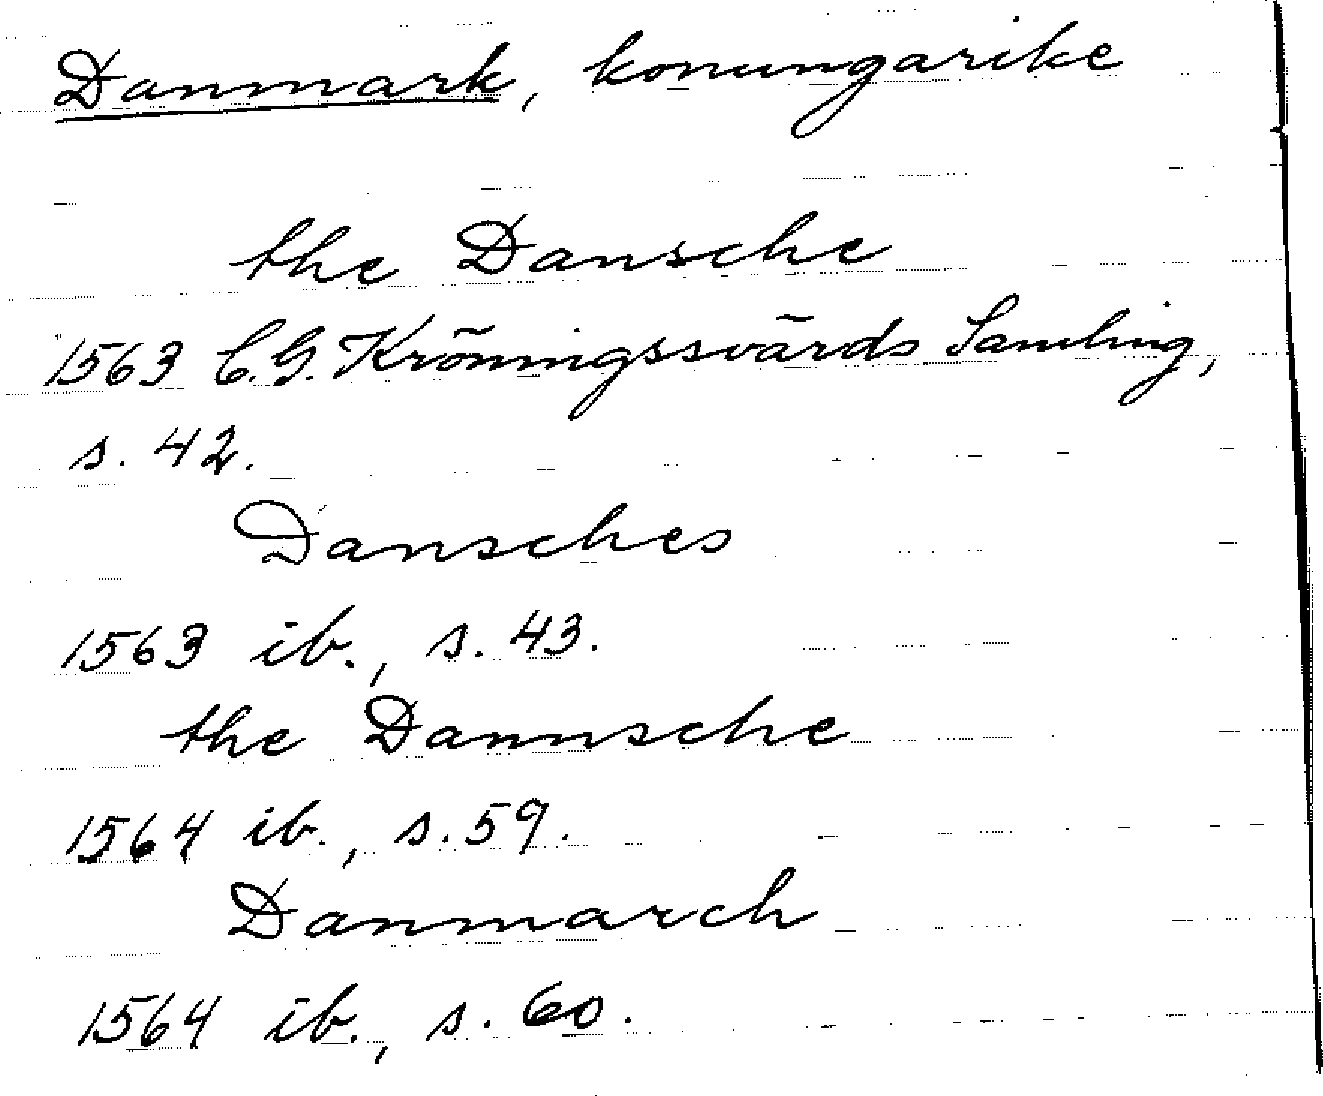 Danmark, konungarike
the Dansche
1563 C.G. Kröningssvärds Samling,
s. 42.
Dansches
1563 ib., s. 43.
the Dannsche
1564 ib., s. 59.
Danmarch
1564 ib., s. 60.